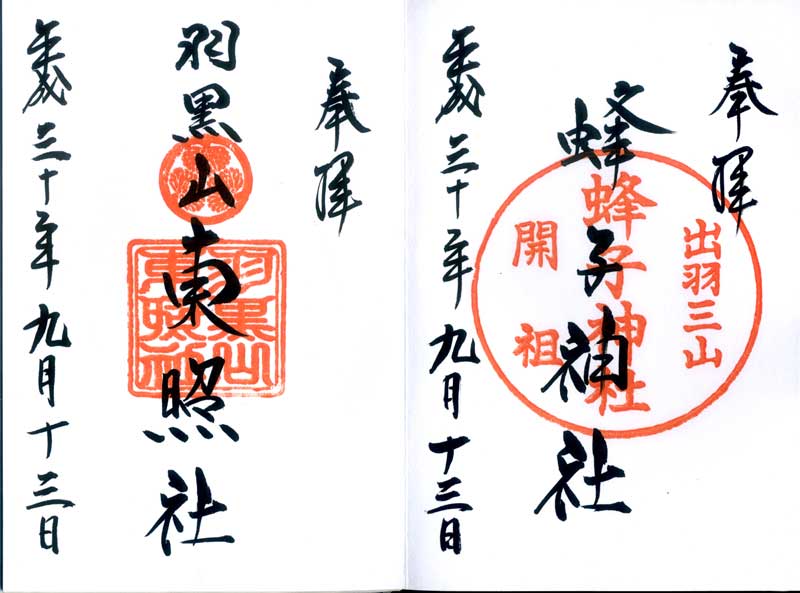 奉拝
出羽三山
蜂子神社
開祖
蜂子神社
平成三十年九月十三日
奉拝
羽黒山東照社
羽黒山
東照社
平成三十年九月十三日